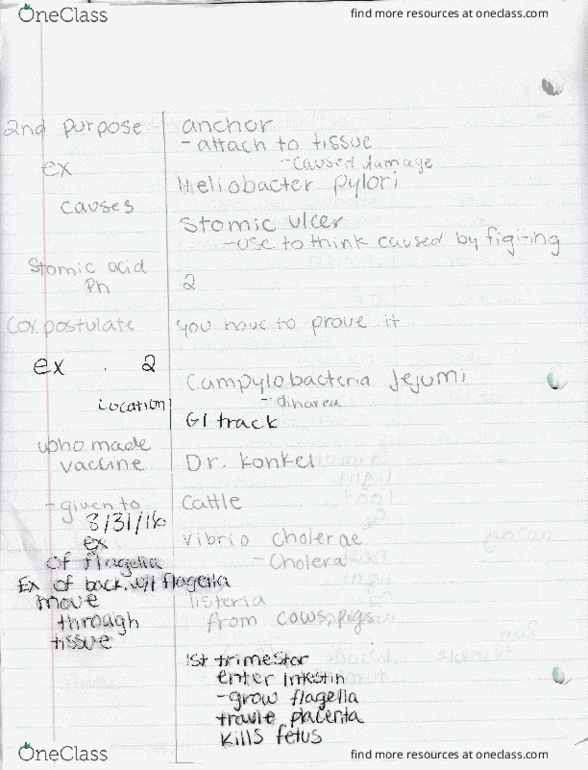 OneClass find more resources at oneclass.com
2nd purpose anchor
- attach to tissue
- caused damage
ex Heliobacter pylori
causes Stomic ulcer
- use to think caused by
Stomic acid
Ph 2
Cox postulate you have to prove it
ex . 2 Campylobacteria Jejumi
Location - diharea
GI track
who made
vaccine Dr. Konkel
- given to cattle
8/31/16
ex vibrio cholerae
of flagella - Cholera
Ex of back. w/t flagella
move listeria
through from cows, pigs
tissue
1st trimestor
enter
- grow flagella
placenta
kills fetus
OneClass find more resources at oneclass.com